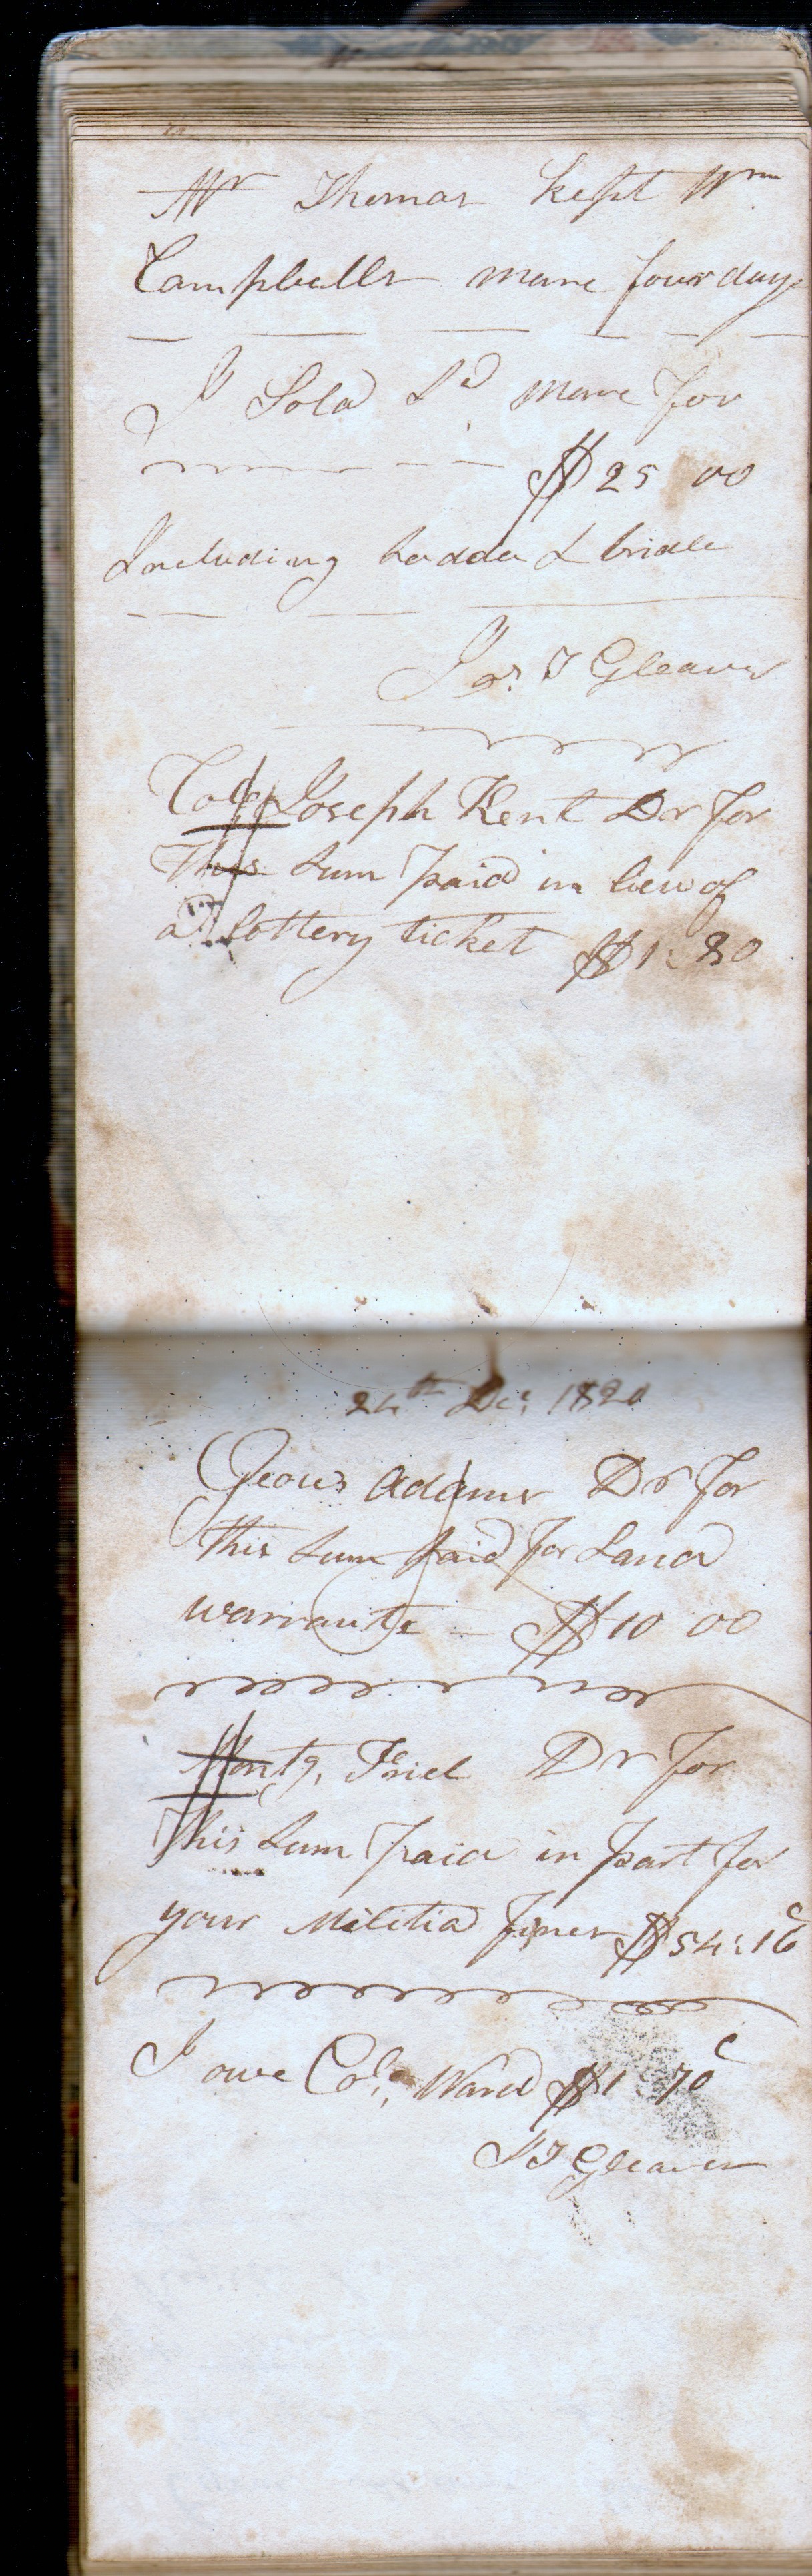 Mr Thomas kept Wm
Campbells mare four days
I Sold Sd mare for
$25 00
Including Saddle & bridle
Jas. T Gleaves
Colo. Joseph Kent Dr for
This Sum paid in lieu of
a lottery ticket $1:80
24th Dec. 1820
Adams Dr for
this Sum paid for Land
warrants - $10 00
Friel Dr for
This Sum paid in part for
your Militia fines $54:16c
I owe Colo. Ward $1 70c
J T Gleaves